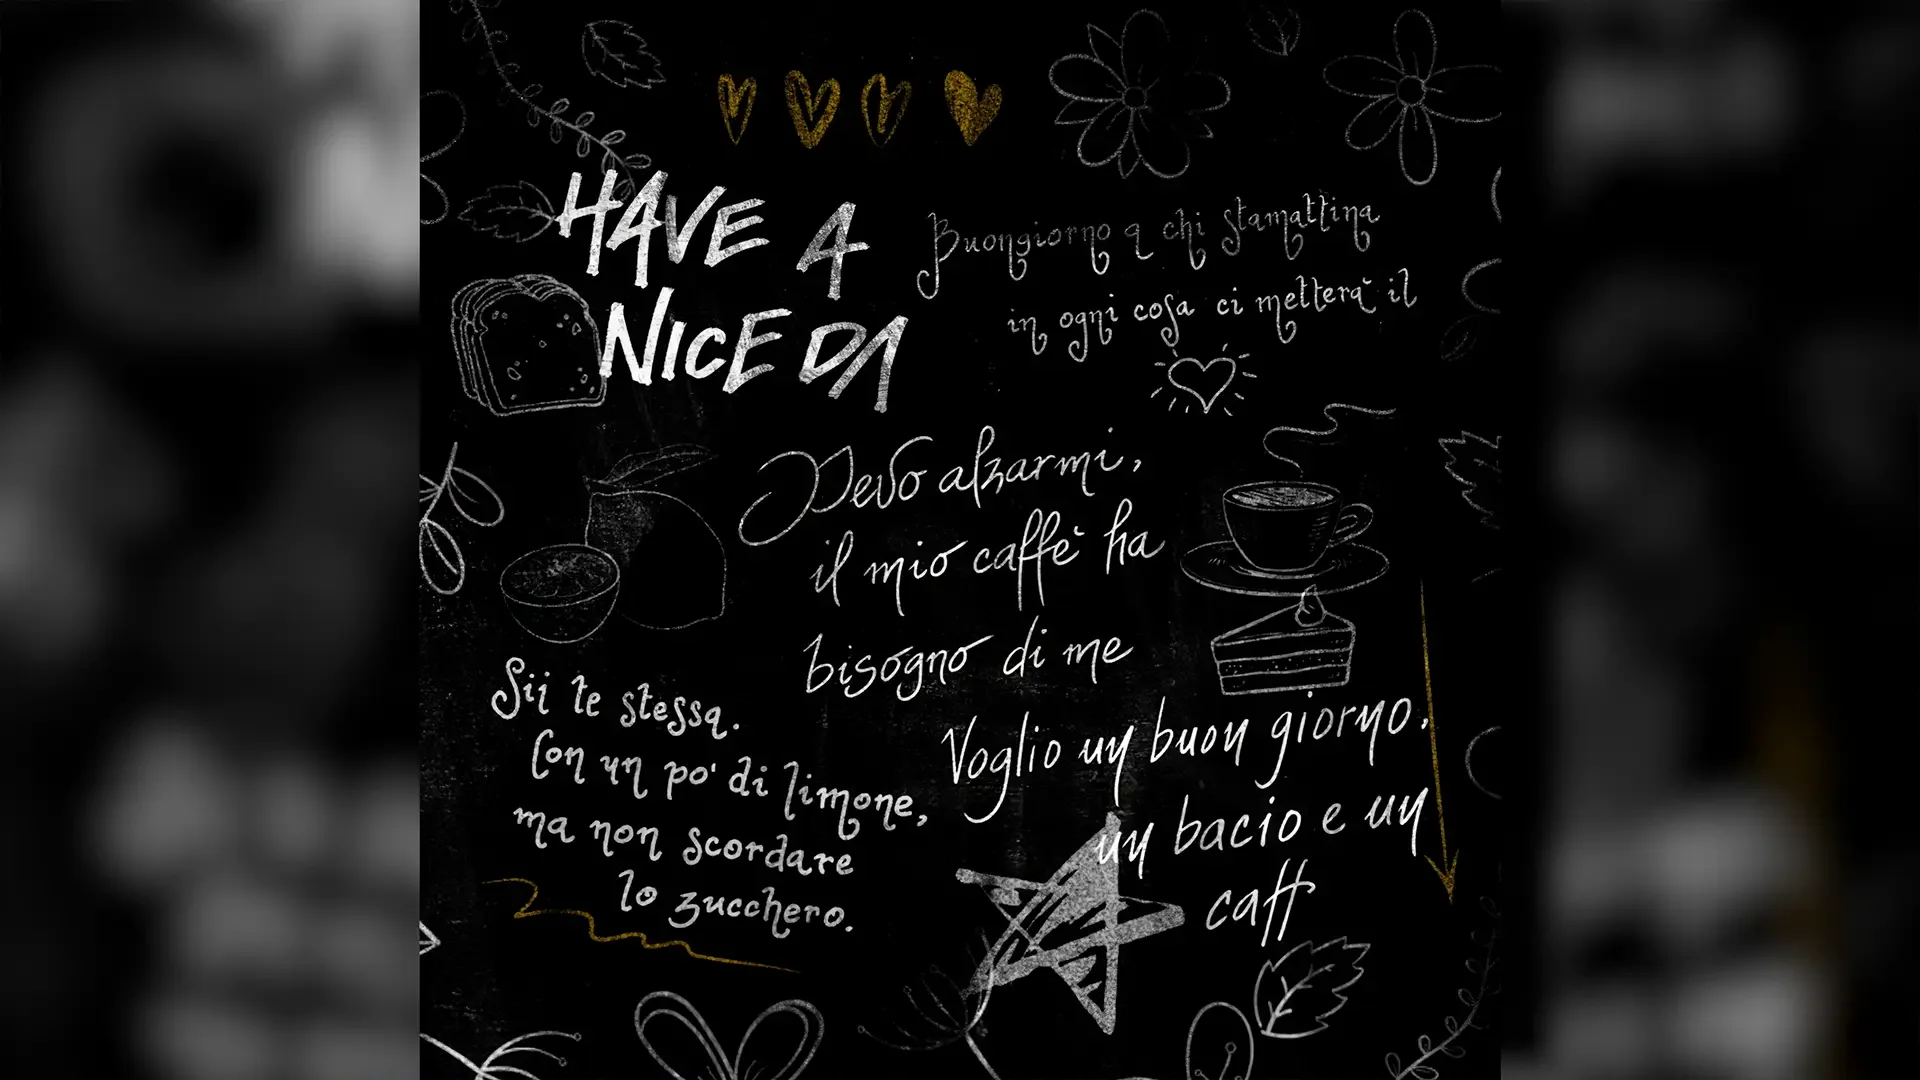 HAVE A
NICE DA
Buongiorno a chi stamattina
in ogni cosa ci metterà il
Devo alzarmi,
il mio caffè ha
bisogno di me
Sii te stessa.
Con un po' di limone,
ma non scordare
lo zucchero.
Voglio un buon giorno.
un bacio e un
caff